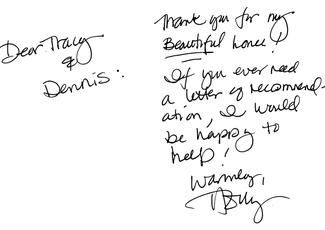 Dear Tracy
&
Dennis:
Thank you for my
Beautiful home!
If you ever need
a letter of recommend-
ation, I would
be happy to
help!
Warmly,